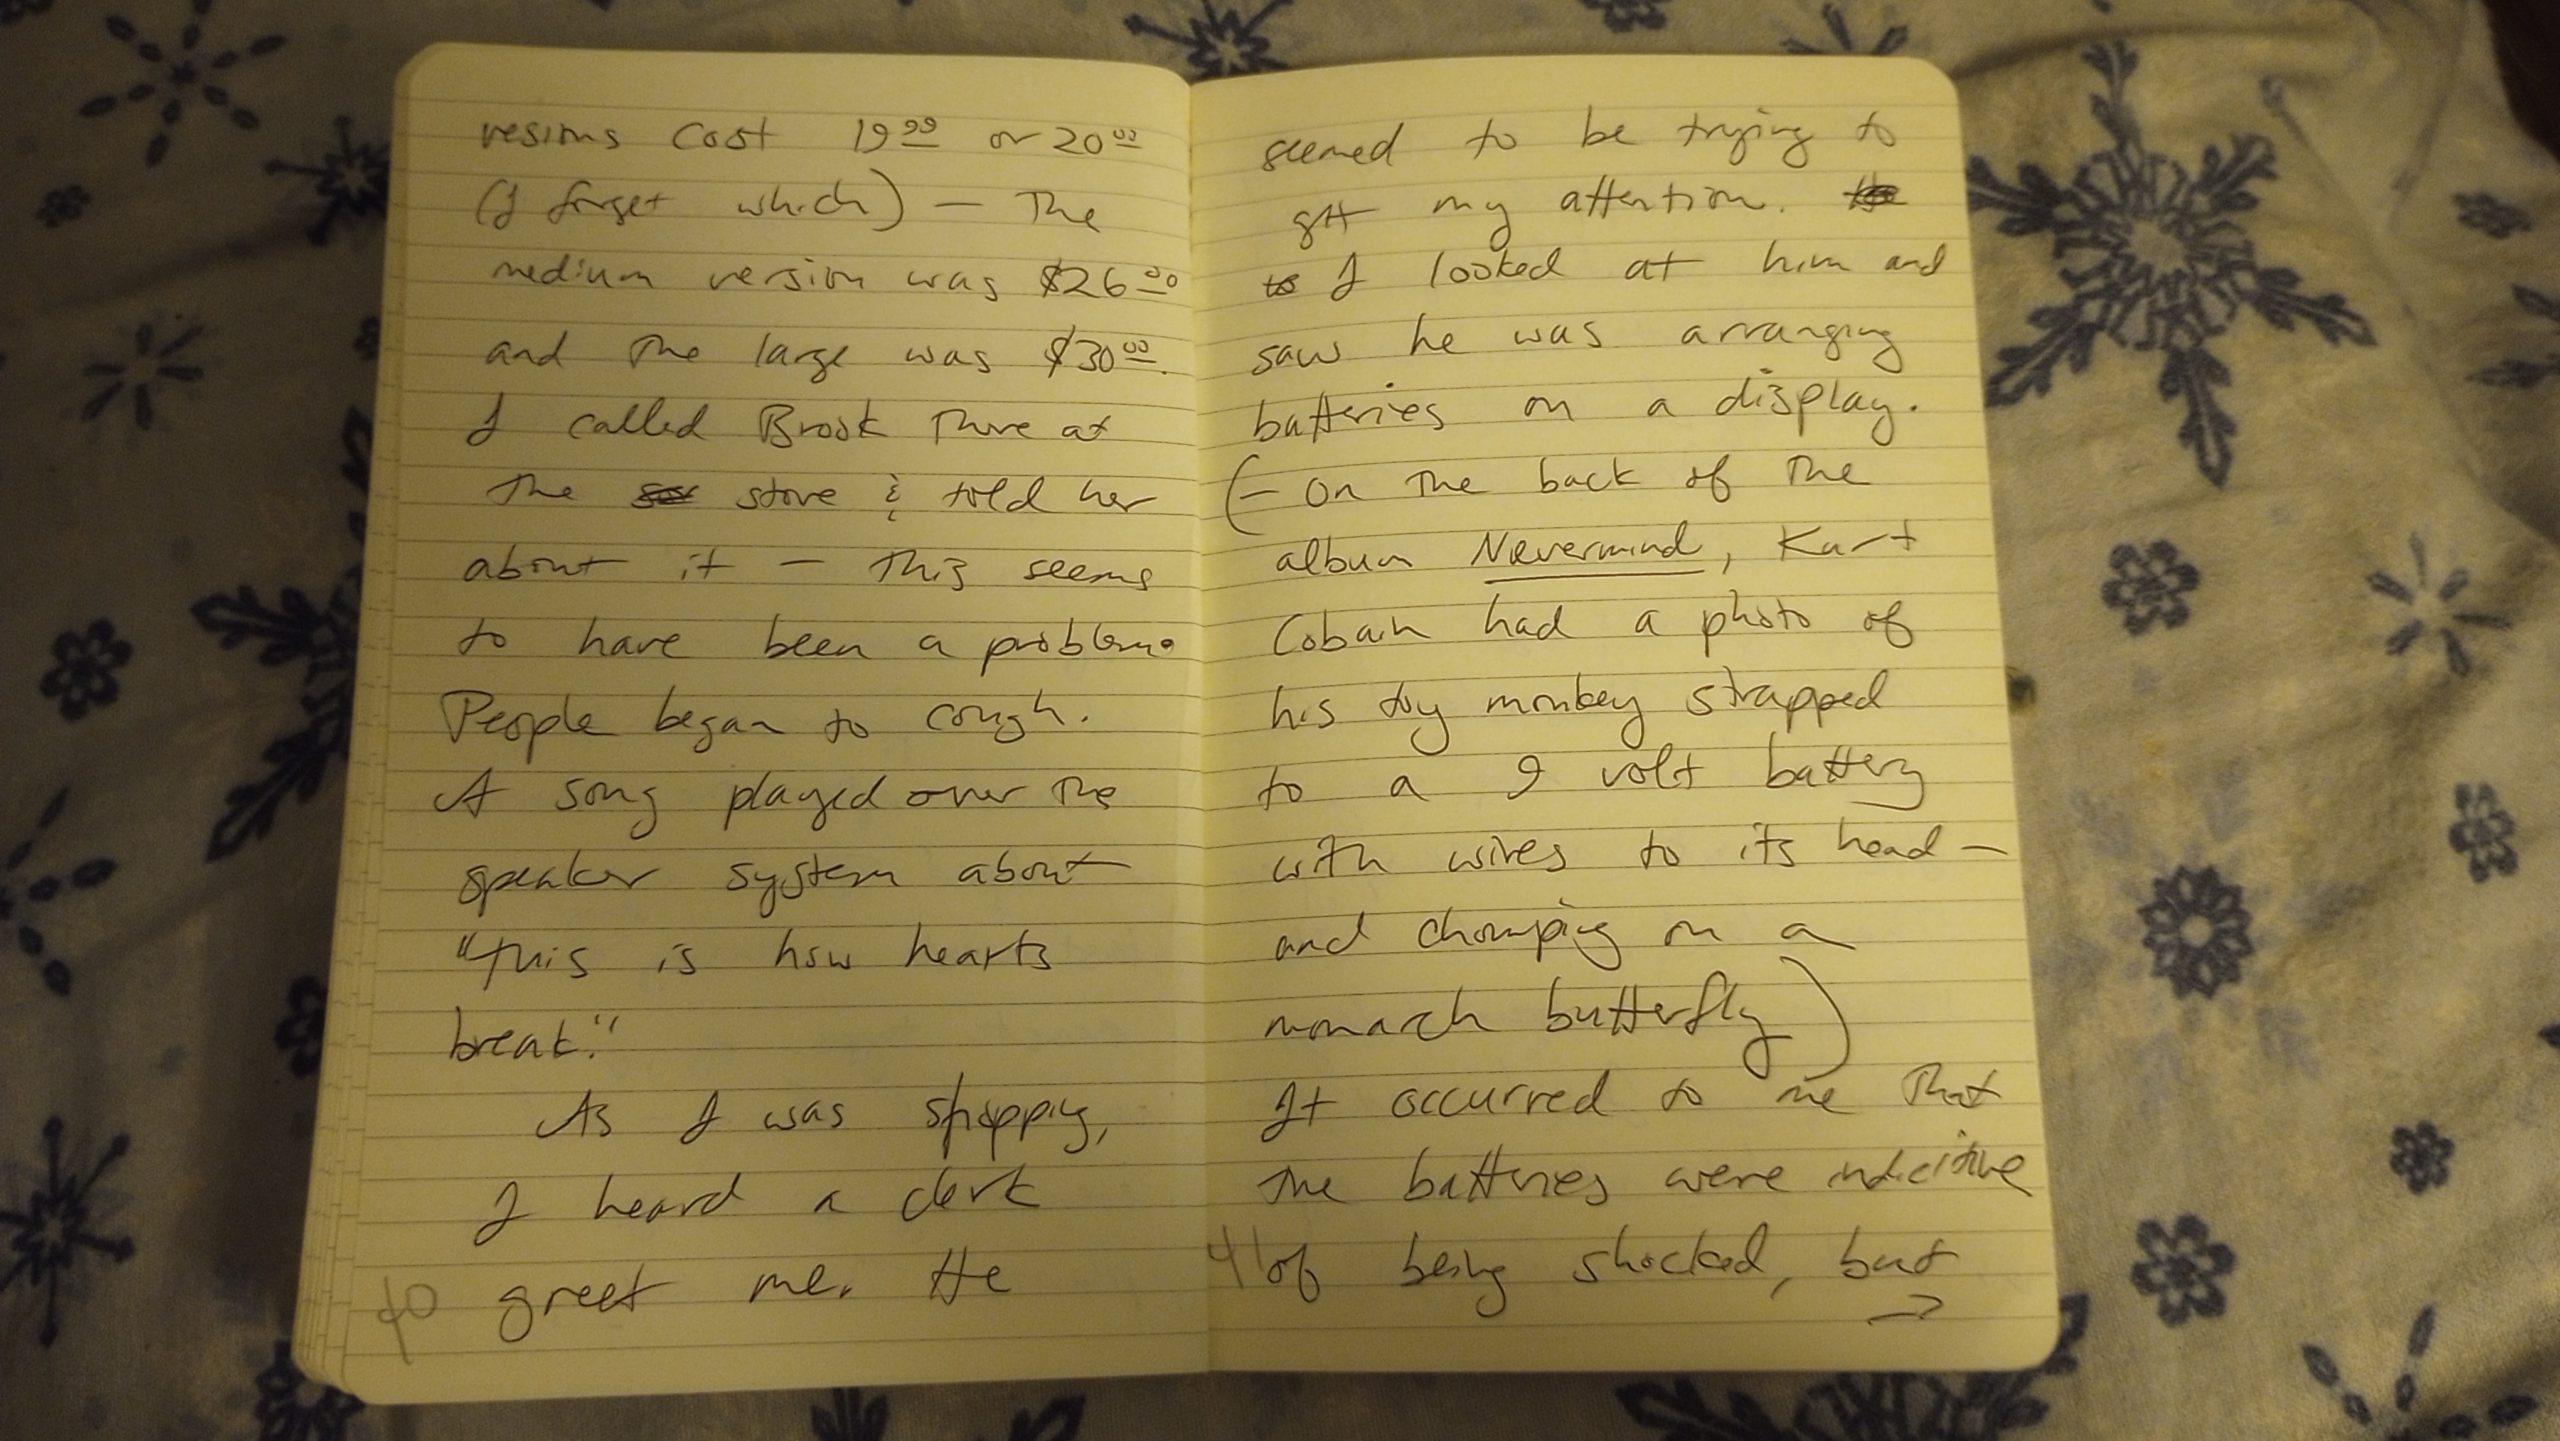 vesions cost 19 99 or 20 00
(I forget which) — The
medium version was $26 00
and the large was $30 00.
I called Brook There at
the store & told her
about it — This seems
to have been a problem.
People began to cough.
A song played over the
speaker system about
"This is how hearts
break."
As I was shopping,
I heard a clerk
greet me. He
40
seemed to be trying to
get my attention.
to I looked at him and
saw he was arranging
batteries on a display.
(— On The back of The
album Nevermind, Kurt
Cobain had a photo of
his toy monkey strapped
to a 9 volt battery
with wires to its head —
and chomping on a
monarch butterfly)
It occurred to me That
The batteries were indicitive
of being shocked, but
41
→